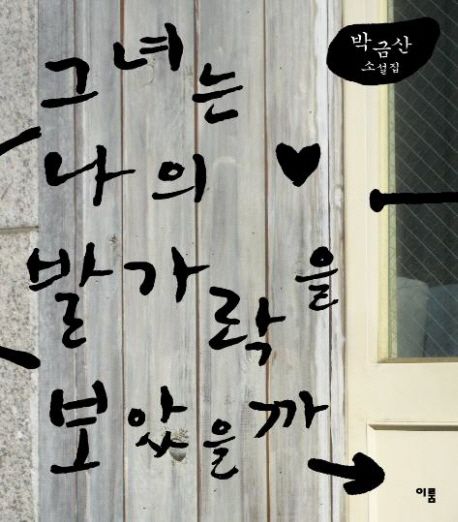 박금산
소설집
그녀는
나의 ♥
발가락을
보았을까
이룸